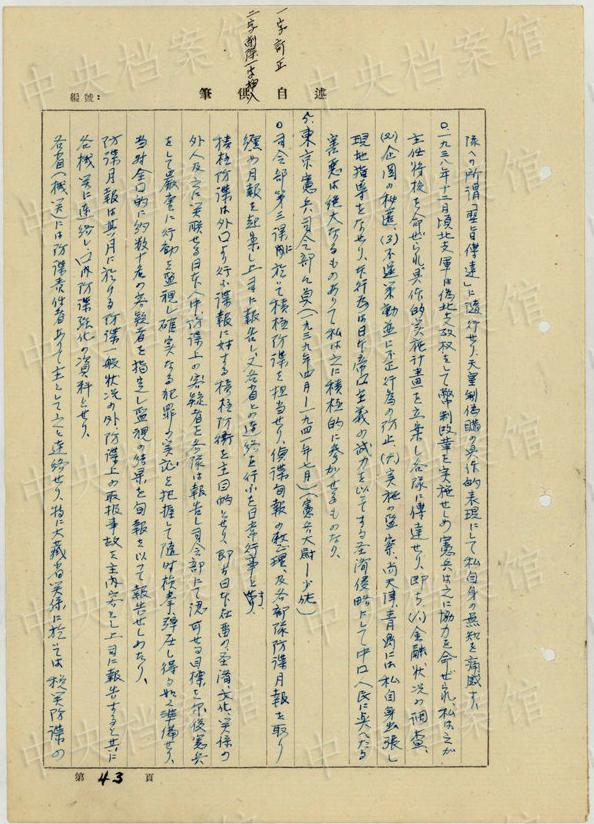 一字訂正
二字削除一字挿入
編號：
筆供自述
隊への所謂「聖旨傳達」に隨行せり、天皇制偽瞞の具体的表現にして私自身の無知を痛感す、
○一九三八年十二月頃北支軍は偽北支政权をして幣制改革を実施せしめ憲兵は之に協力を命ぜられ、私は之が
主任将校を命ぜられ具体的実施計畫を立案し各隊に傳達せり、即ち、(1)金融状況の調査、
(2)企圖の秘匿、(3)不逞策動並に不正行為の防止、(4)実施の監察、尚天津、青島には私自身出張し
現地指導をなせり、本行為は日本帝国主義の武力を以てする至済侵略にして中囗人民に与へたる
害悪は絶大なるものありて私は之に積極的に参加せるものなり、
5、東京憲兵司令部々員（一九三九年四月―一九四一年七月）（憲兵大尉―少佐）
○司令部第三課内に於て積極防諜を担当せり、偵諜旬報の整理及各部隊防諜月報を取り
纏め月報を起案し上司に報告し又各省との連絡を行ふを日常行事とす、
積極防諜は外囗より行ふ諜報に対する積極防衛を主目的とせり、即ち日本在留の至済、文化、関係の
外人及之に関联せる日本人中防諜上の容疑者を兵隊は報告し司令部にて認可せる目標を
をして嚴重に行動を監視し確実なる犯罪の実証を把握して隨時検挙、弾圧し得る如く準備せり、
当時全囗的に約数十名の容疑者を指定し監視の結果を旬報を以て報告せしめたり、
防諜月報は其月に於ける防諜一般状況の外防諜上の取扱事故を主内容とし上司に報告すると共に
各机関に連絡し囗内防諜強化の資料とせり、
各省（机関）には防諜責任者ありて主として之と連絡せり、特に大藏省関係に於ては税関防諜の
第 43 頁
中央档案馆